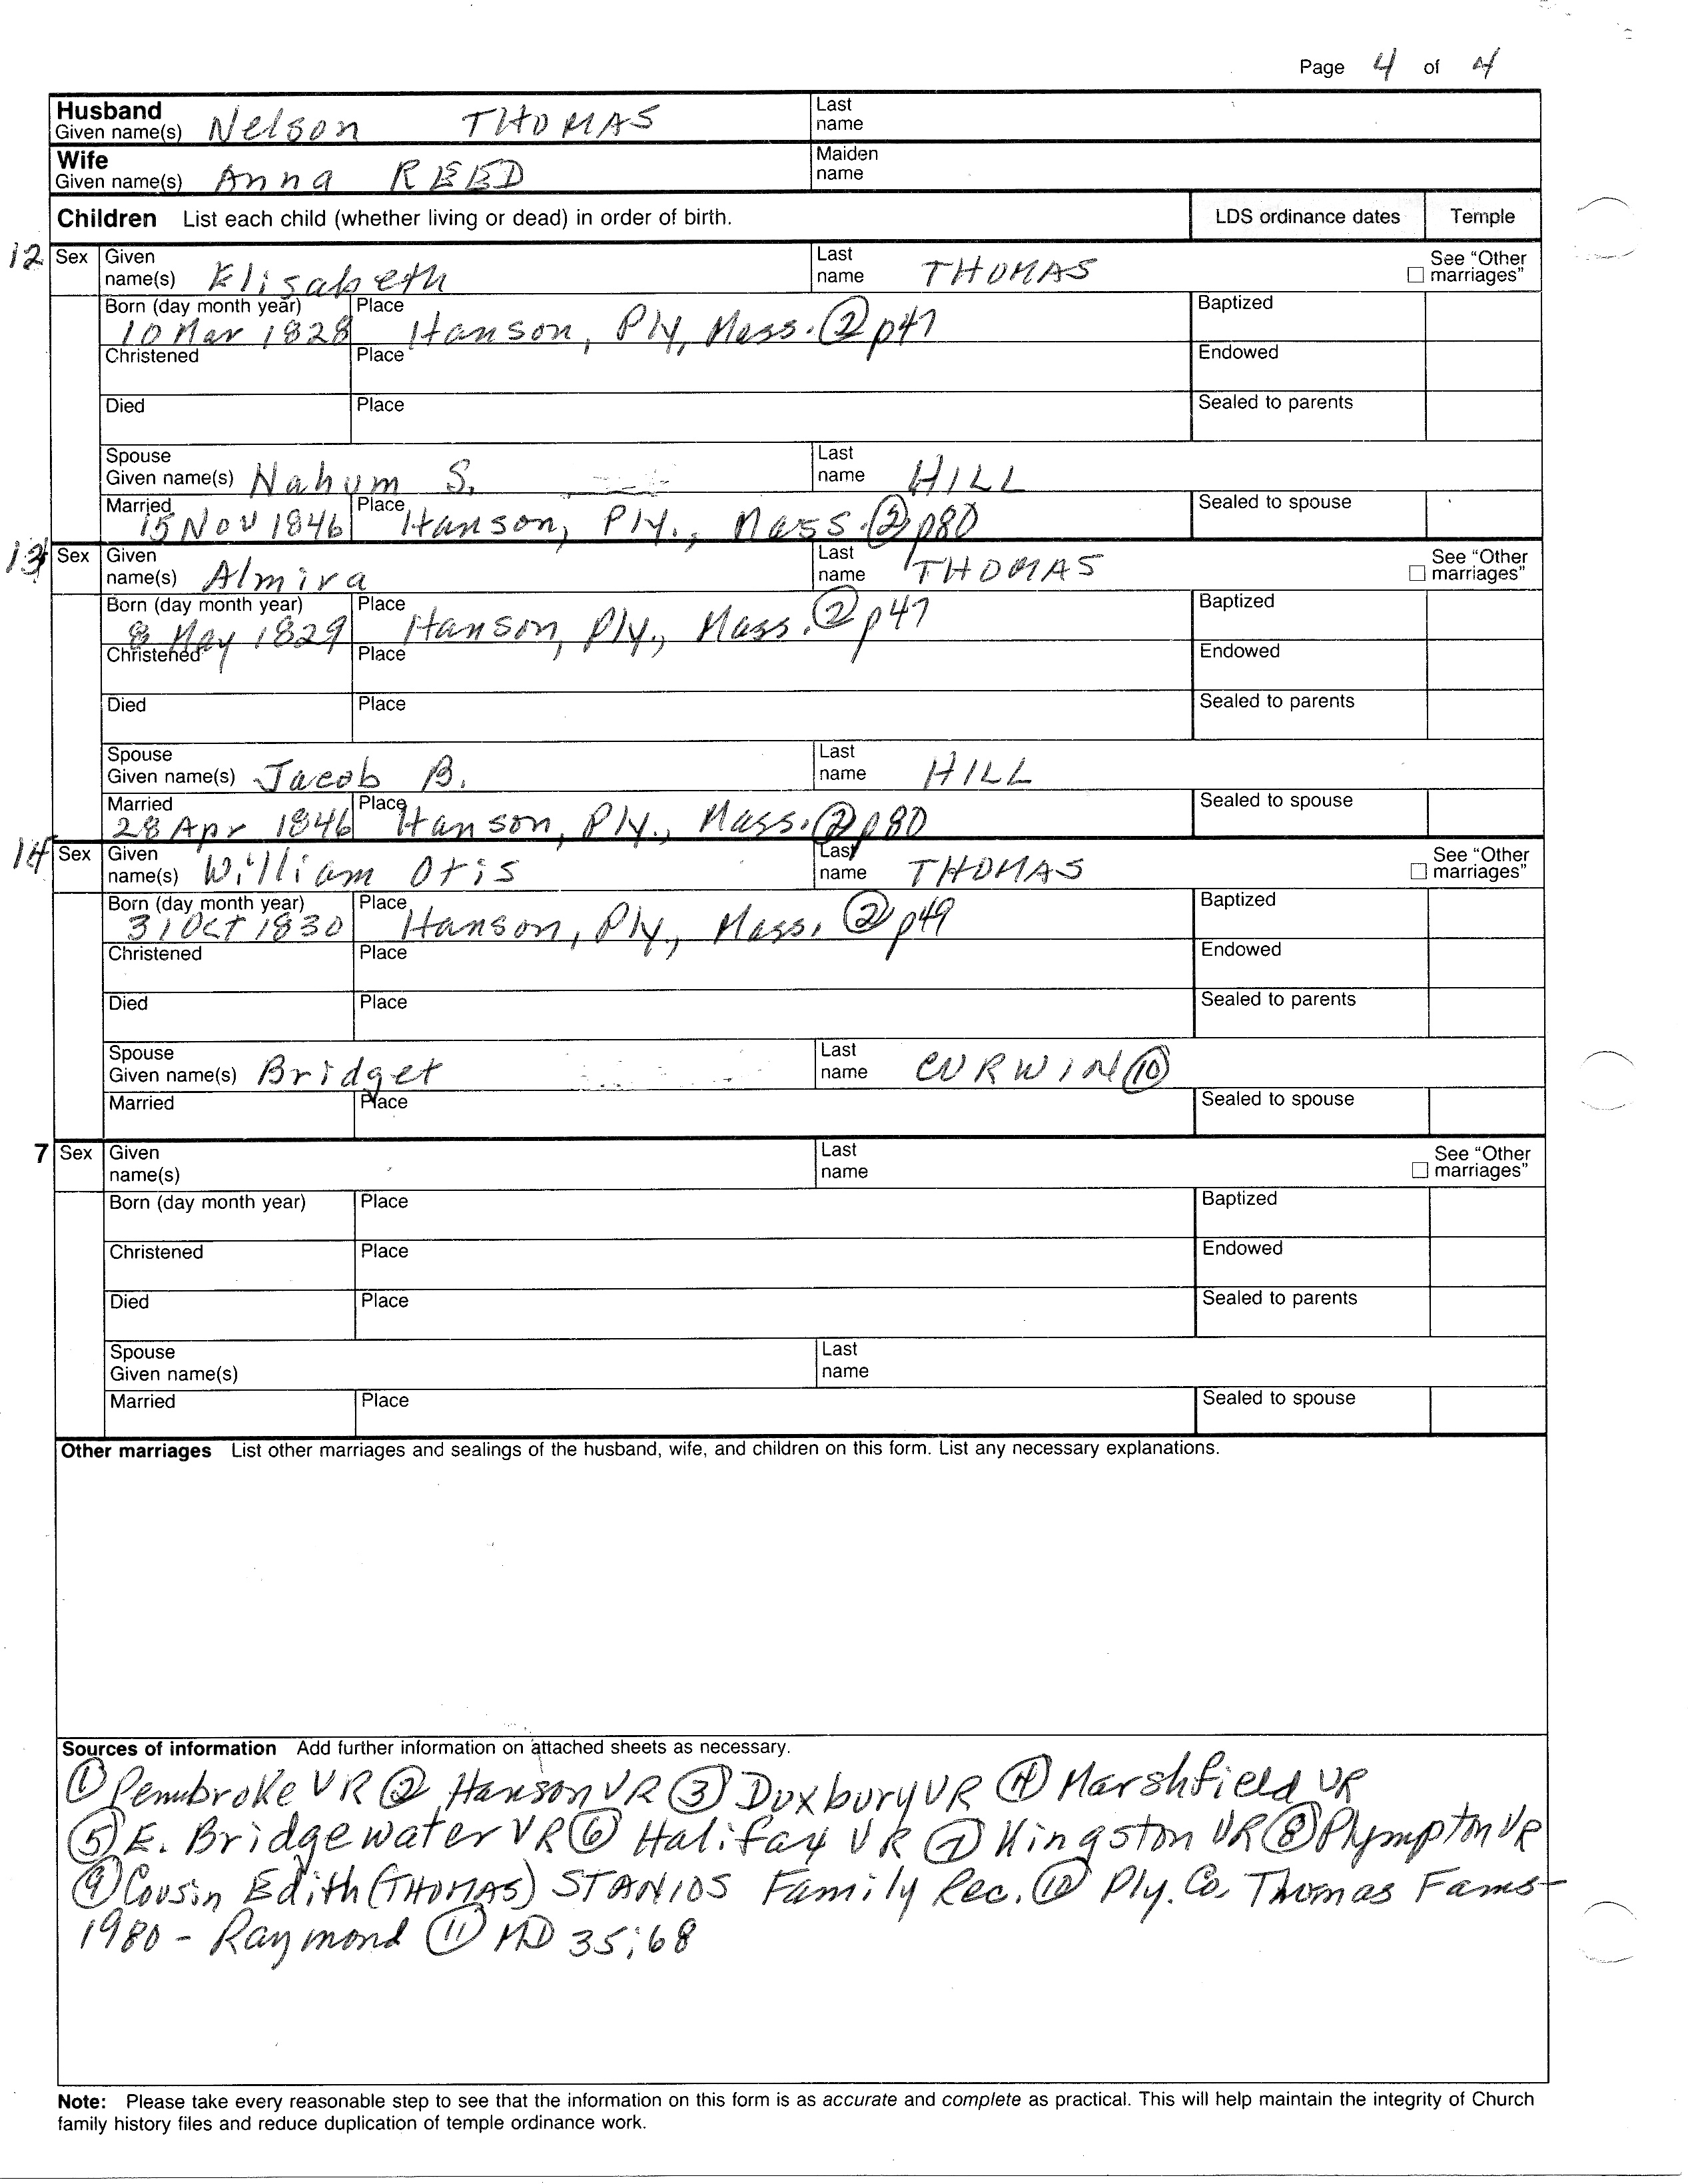 Page 4 of 4
Husband Given name(s) Nelson THOMAS Last name
Wife Given name(s) Anna REED Maiden name
Children List each child (whether living or dead) in order of birth. LDS ordinance dates Temple
12 Sex Given name(s) Elisabeth Last name THOMAS See “Other marriages”
Born (day month year) 10 Mar 1828 Place Hanson, Ply, Mass. ② p47 Baptized
Christened Place Endowed
Died Place Sealed to parents
Spouse Given name(s) Nahum S. Last name HILL
Married 15 Nov 1846 Place Hanson, Ply., Mass. ② p80 Sealed to spouse
13 Sex Given name(s) Almira Last name THOMAS See “Other marriages”
Born (day month year) 8 May 1829 Place Hanson, Ply., Mass. ② p47 Baptized
Christened Place Endowed
Died Place Sealed to parents
Spouse Given name(s) Jacob B. Last name HILL
Married 28 Apr 1846 Place Hanson, Ply., Mass. ② p80 Sealed to spouse
14 Sex Given name(s) William Otis Last name THOMAS See “Other marriages”
Born (day month year) 31 Oct 1830 Place Hanson, Ply., Mass. ② p49 Baptized
Christened Place Endowed
Died Place Sealed to parents
Spouse Given name(s) Bridget Last name CURWIN ⑩
Married Place Sealed to spouse
7 Sex Given name(s) Last name See “Other marriages”
Born (day month year) Place Baptized
Christened Place Endowed
Died Place Sealed to parents
Spouse Given name(s) Last name
Married Place Sealed to spouse
Other marriages List other marriages and sealings of the husband, wife, and children on this form. List any necessary explanations.
Sources of information Add further information on attached sheets as necessary.
① Pembroke VR ② Hanson VR ③ Duxbury VR ④ Marshfield VR
⑤ E. Bridgewater VR ⑥ Halifax VR ⑦ Kingston VR ⑧ Plympton VR
⑨ Cousin Edith (THOMAS) STANIOS Family Rec. ⑩ Ply. Co. Thomas Fams-
1980 - Raymond ⑪ MD 35:68
Note: Please take every reasonable step to see that the information on this form is as accurate and complete as practical. This will help maintain the integrity of Church
family history files and reduce duplication of temple ordinance work.